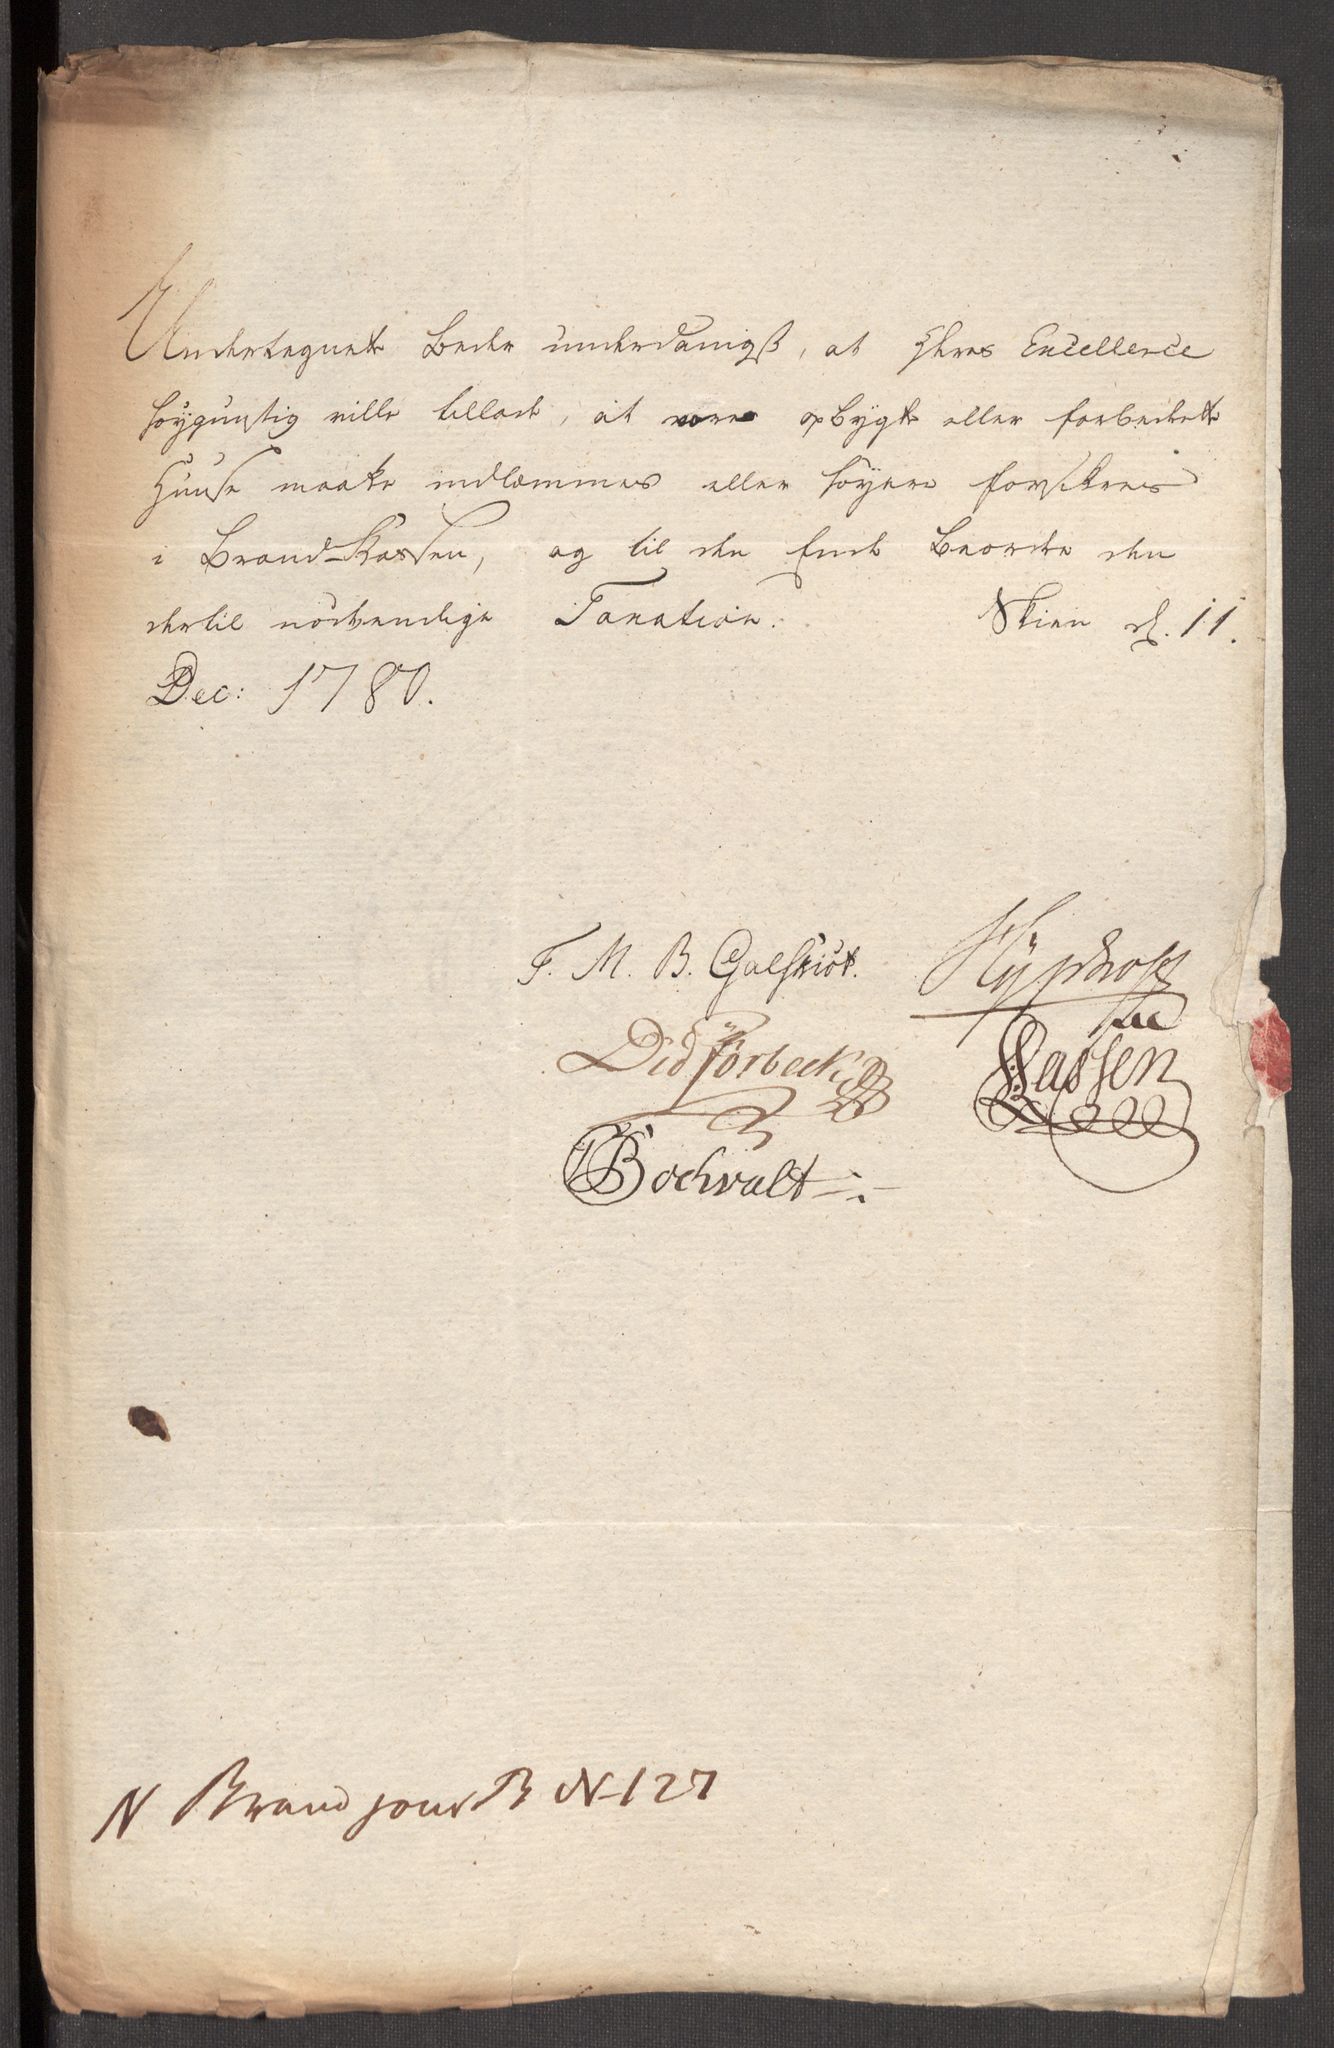 Undertegnede beder underdanigst, at Deres Excellence
høygunstig ville tillade, at vore opbygte eller forbedrede
Huuse maatte indlemmes eller høyere forsikres
i Brand-Kassen, og til den Ende beordre den
dertil nødvendige Taxation. Skien d. 11.
Dec: 1780.
F. M. B. Galskiöt.
Did Cörbeck
Lassen
Bochvalt
N Brand jour B No 127